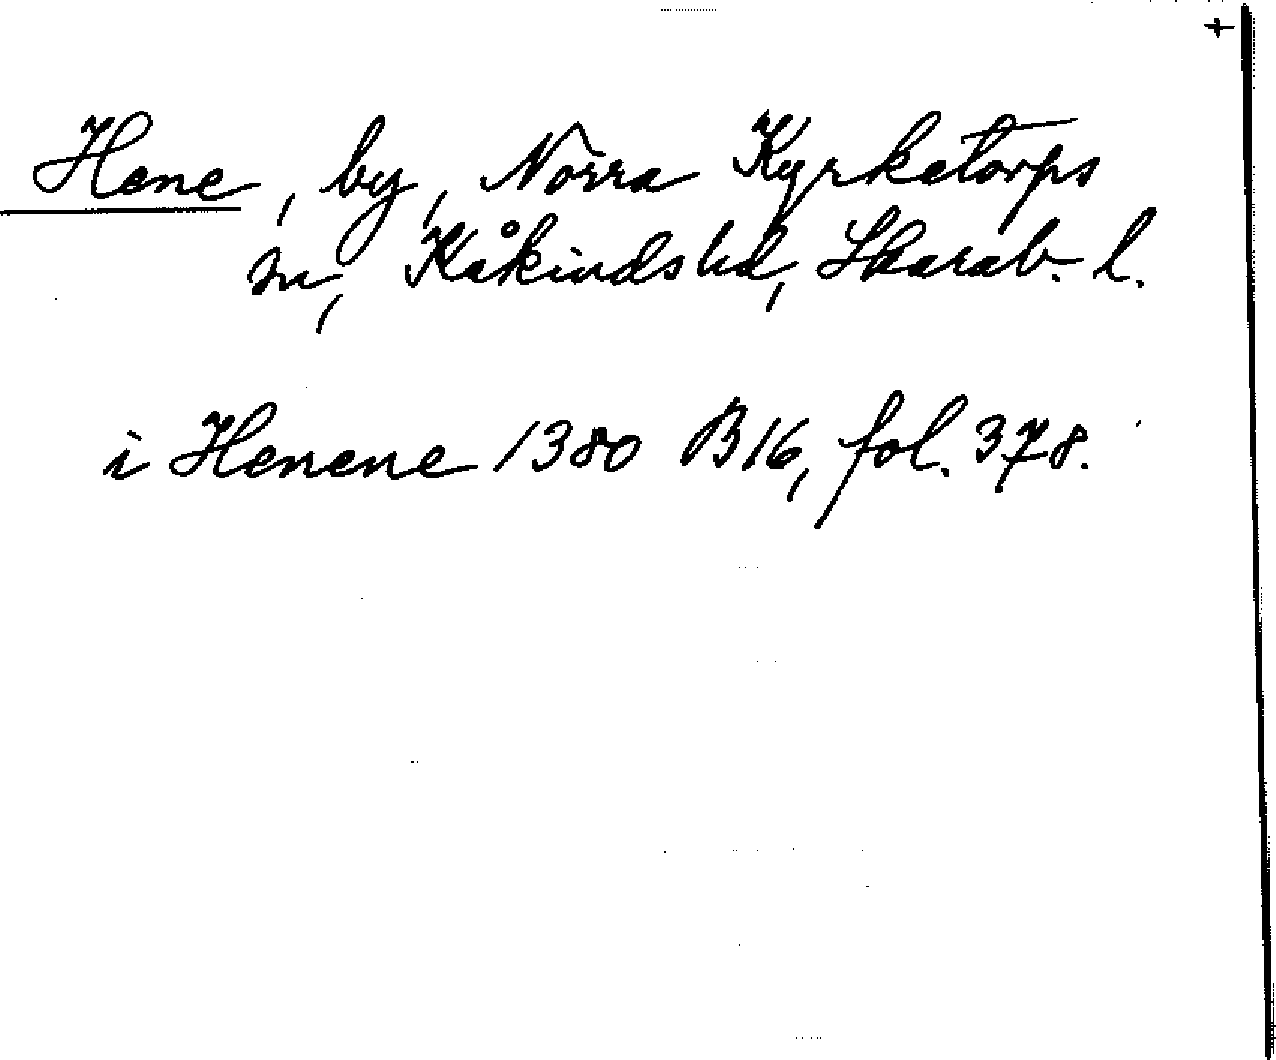 +
Hene, by, Norra Kyrketorps
sn, Kåkinds hd, Skarab. l.
i Henene 1380 B16, fol. 378.